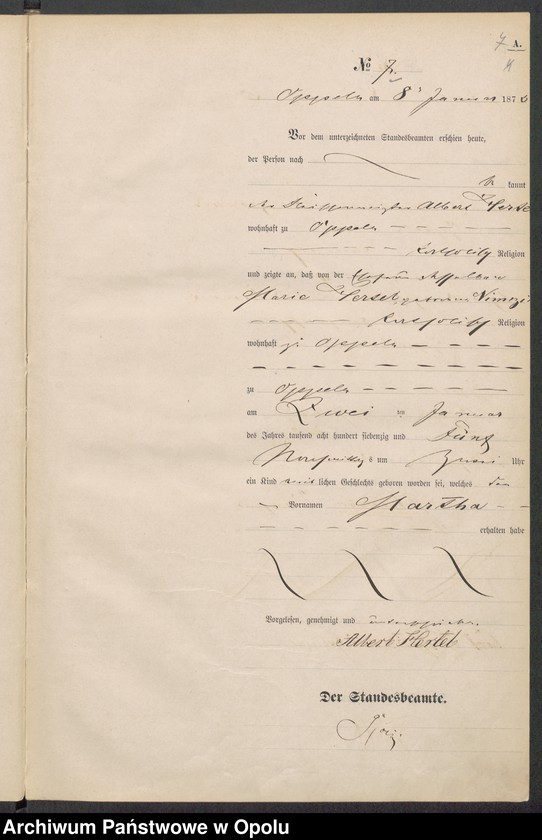 7 A.
No 7.
Oppeln am 8 Januar 187
Vor dem unterzeichneten Standesbeamten erschien heute,
der Person nach
kannt
Albert Hertel
wohnhaft zu Oppeln
katholischer Religion
und zeigte an, daß von der Ehefrau desselben
Marie Hertel geborene
katholischer Religion
wohnhaft zu Oppeln
zu Oppeln
am Zwei ten Januar
des Jahres tausend acht hundert siebenzig und Fünf
Nachmittags um Zwei Uhr
ein Kind weiblichen Geschlechts geboren worden sei, welches den
Vornamen Martha
erhalten habe
Vorgelesen, genehmigt und unterschrieben.
Albert Hertel
Der Standesbeamte.
Archiwum Państwowe w Opolu